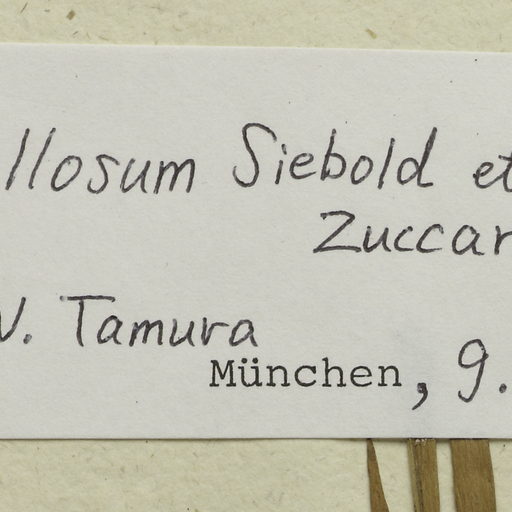 llosum Siebold et
Zuccar
N. Tamura
München, 9.